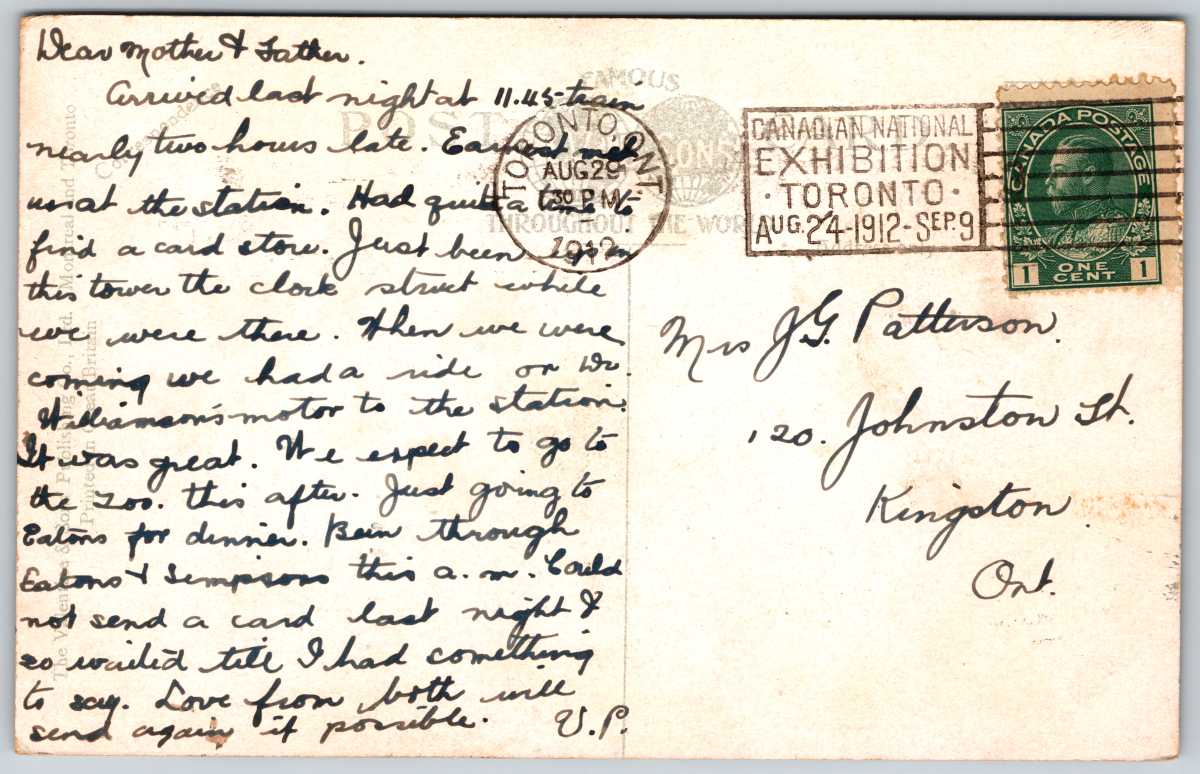 Dear Mother & Father.
Arrived last night at 11.45 train
nearly two hours late. Earnest met
us at the station. Had quite a time to
find a card store. Just been up in
this tower the clock struck while
we were there. When we were
coming we had a ride on Dr.
Williamson's motor to the station.
It was great. We expect to go to
the zoo. this after. Just going to
Eatons for dinner. Been through
Eatons & Simpsons this a.m. Could
not send a card last night &
so waited till I had something
to say. Love from both will
send again if possible. V.P.
FAMOUS
POST
THROUGHOUT THE WORLD
TORONTO, ONT
AUG 29
30 P.M.
1912
CANADIAN NATIONAL
EXHIBITION
· TORONTO ·
AUG. 24-1912-SEP. 9
CANADA POSTAGE
1 ONE CENT 1
Mrs J.G. Patterson.
120. Johnston St.
Kingston
Ont.
Printed in Great Britain